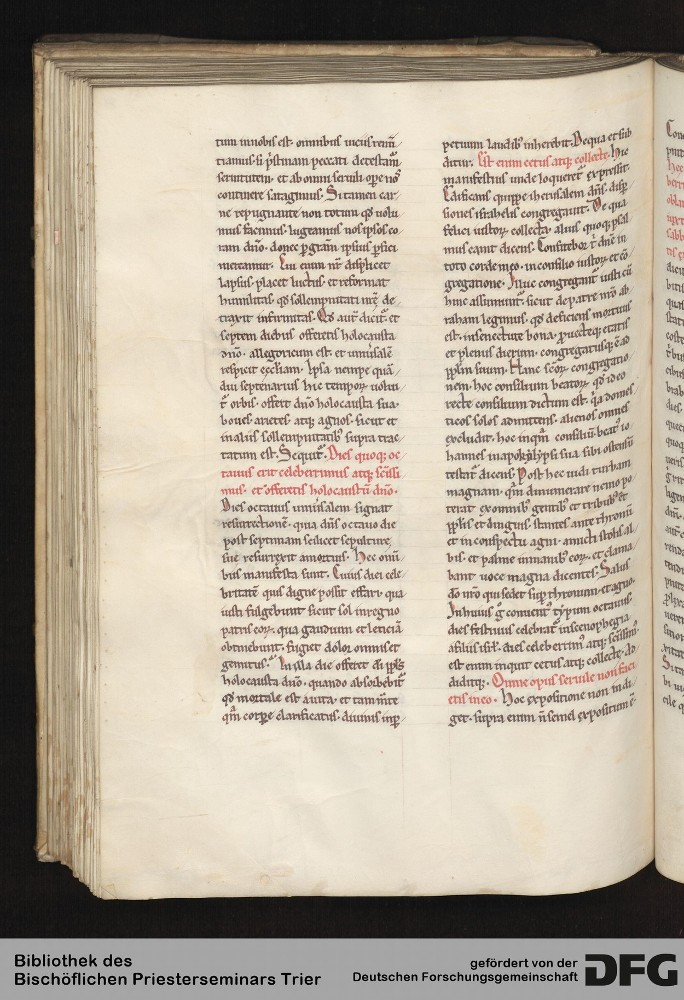 tum in nobis est· omnibus uiciis renũ
tiamus· si p̃stinam peccati detestam̃
seruitutem· et ab omni seruili ope nos
continere satagimus· Si tamen car
ne repugnante non totum qđ uolu
mus facimus· lugeamus nos ipsos co
ram dño· donec p gram̃ ipsius p̃fici
mereamur· Cui enim nr̃ displicet
lapsus· placet luctus· et reformat
humilitas· qđ sollempnitati nr̃ę de
traxit infirmitas· Qđ aut̃ dicit̃· et
septem diebus offeretis holocausta
dño· allegoricum est· et uniũsalẽ
respicit ęccłiam· Ipsa nempe quã
diu septenarius hic temporũ uolui
t̃ orbis· offert dño holocausta sua·
boues· arietes· atq; agnos· sicut et
in aliis sollempnitatib; supra trac
tatum est· Sequit̃· Dies quoq; oc
tauus erit celeberrimus atq; sc̃issi
mus· et offeretis holocaustũ dño·
Dies octauus uniũsalem signat
resurrectionẽ· qua dñs octauo die
post septimam scilicet sepulturę
suę resurrexit a mortuis· Hec omñ
bus manifesta sunt· Cuius diei cele
britatẽ quis digne possit effari· qua
iusti fulgebunt sicut sol in regno
patris eoꝝ· qua gaudium et leticiã
obtinebunt· fugiet dolor omnis et
gemitus· In illa die offeret dĩ ppls
holocausta dño· quando absorbebit̃
qđ mortale est a uita· et tam m̃te
qm̃ corpe clarificatus· diuinis in pp
petuum laudib; inherebit· De qua et sub
ditur· Est enim cetus atq; collectę· Hic
manifestius unde loqueret̃ expressit·
Edificans quippe iherusalem dñs· disp̃
siones israhelis congregauit̃· De qua
felici iustoꝝ collecta· alius quoq; psal
mus canit dicens· Confitebor t̃ dñe in
toto corde meo· in consilio iustoꝝ et cõ
gregatione· In hac congregant̃ iusti cũ
hinc assumunt̃· sicut de patre nr̃o ab
raham legimus· qđ deficiens mortuus
est· in senectute bona· p̃uectęq; etatis
et plenus dierum· congregatusq; ẽ ad
pplm suum· Hanc sc̃oꝝ congregatio
nem· hoc consilium beatoꝝ· qđ ideo
recte consilium dictum est· q̃a domes
ticos solos admittens· alienos omnes
excludit· hoc inquã consiliũ beat̃ io
hannes in apokalypsi sua sibi ostensũ
testat̃ dicens· Post hec uidi turbam
magnam· qm̃ dinumerare nemo po
terat ex omnib; gentib; et tribub; et
pplis et linguis· stantes ante thronũ
et in conspectu agni· amicti stolis al
bis· et palmę in manib; eoꝝ· et clama
bant uoce magna dicentes· Salus
do nr̃o qui sedet sup̃ thronum· et agno·
In huius g̃ conuent̃ typum octauus·
dies festiuus celebrat̃ in scenophegia
a filiis isrł· dies celeberrim̃ atq; sc̃issim̃·
est enim inquit cetus atq; collectę· ad
diditq;· Omne opus seruile non faci
etis in eo· Hoc expositione non indi
get· supra enim ñ semel expositum ẽ·
Bibliothek des
Bischöflichen Priesterseminars Trier
gefördert von der
Deutschen Forschungsgemeinschaft
DFG